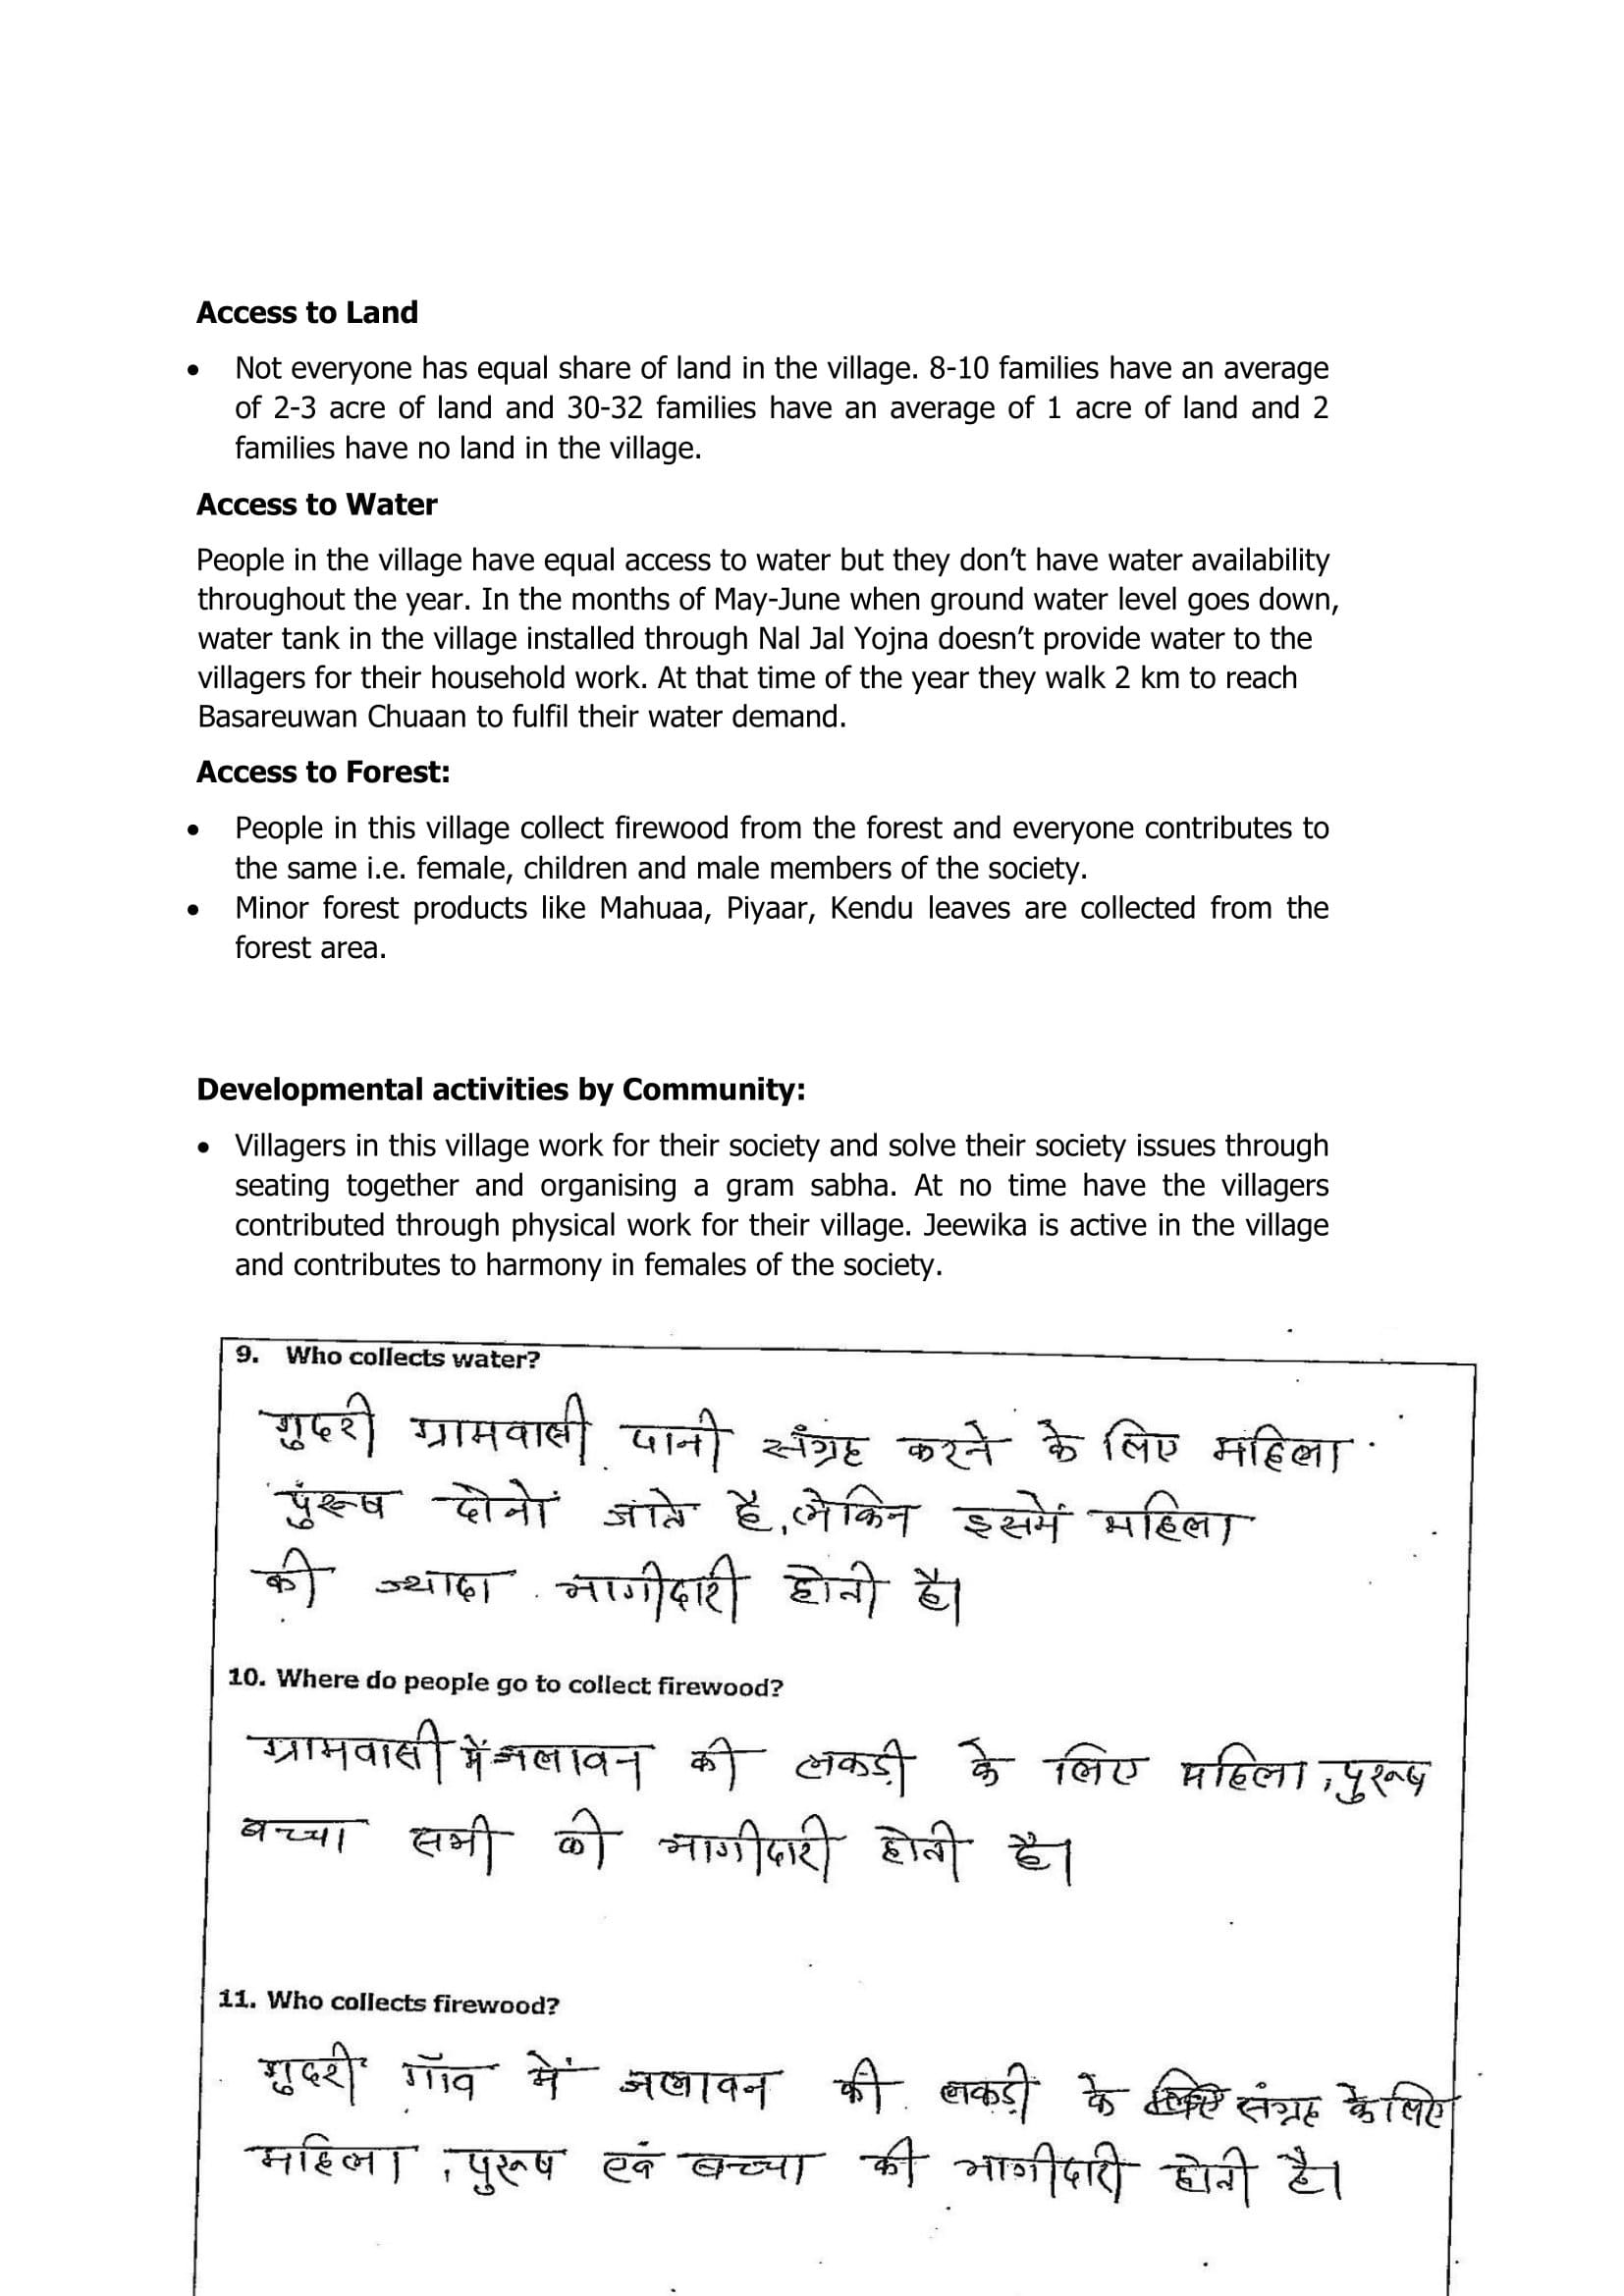 Access to Land
• Not everyone has equal share of land in the village. 8-10 families have an average
of 2-3 acre of land and 30-32 families have an average of 1 acre of land and 2
families have no land in the village.
Access to Water
People in the village have equal access to water but they don’t have water availability
throughout the year. In the months of May-June when ground water level goes down,
water tank in the village installed through Nal Jal Yojna doesn’t provide water to the
villagers for their household work. At that time of the year they walk 2 km to reach
Basareuwan Chuaan to fulfil their water demand.
Access to Forest:
• People in this village collect firewood from the forest and everyone contributes to
the same i.e. female, children and male members of the society.
• Minor forest products like Mahuaa, Piyaar, Kendu leaves are collected from the
forest area.
Developmental activities by Community:
• Villagers in this village work for their society and solve their society issues through
seating together and organising a gram sabha. At no time have the villagers
contributed through physical work for their village. Jeewika is active in the village
and contributes to harmony in females of the society.
9. Who collects water?
गुदरी ग्रामवासी पानी संग्रह करने के लिए महिला
पुरूष दोनों जाते है, लेकिन इसमें महिला
की ज्यादा भागीदारी होती है।
10. Where do people go to collect firewood?
ग्रामवासी में जलावन की लकड़ी के लिए महिला, पुरूष
बच्चा सभी की भागीदारी होती है।
11. Who collects firewood?
गुदरी गॉव में जलावन की लकड़ी के संग्रह के लिए
महिला, पुरूष एवं बच्चा की भागीदारी होती है।